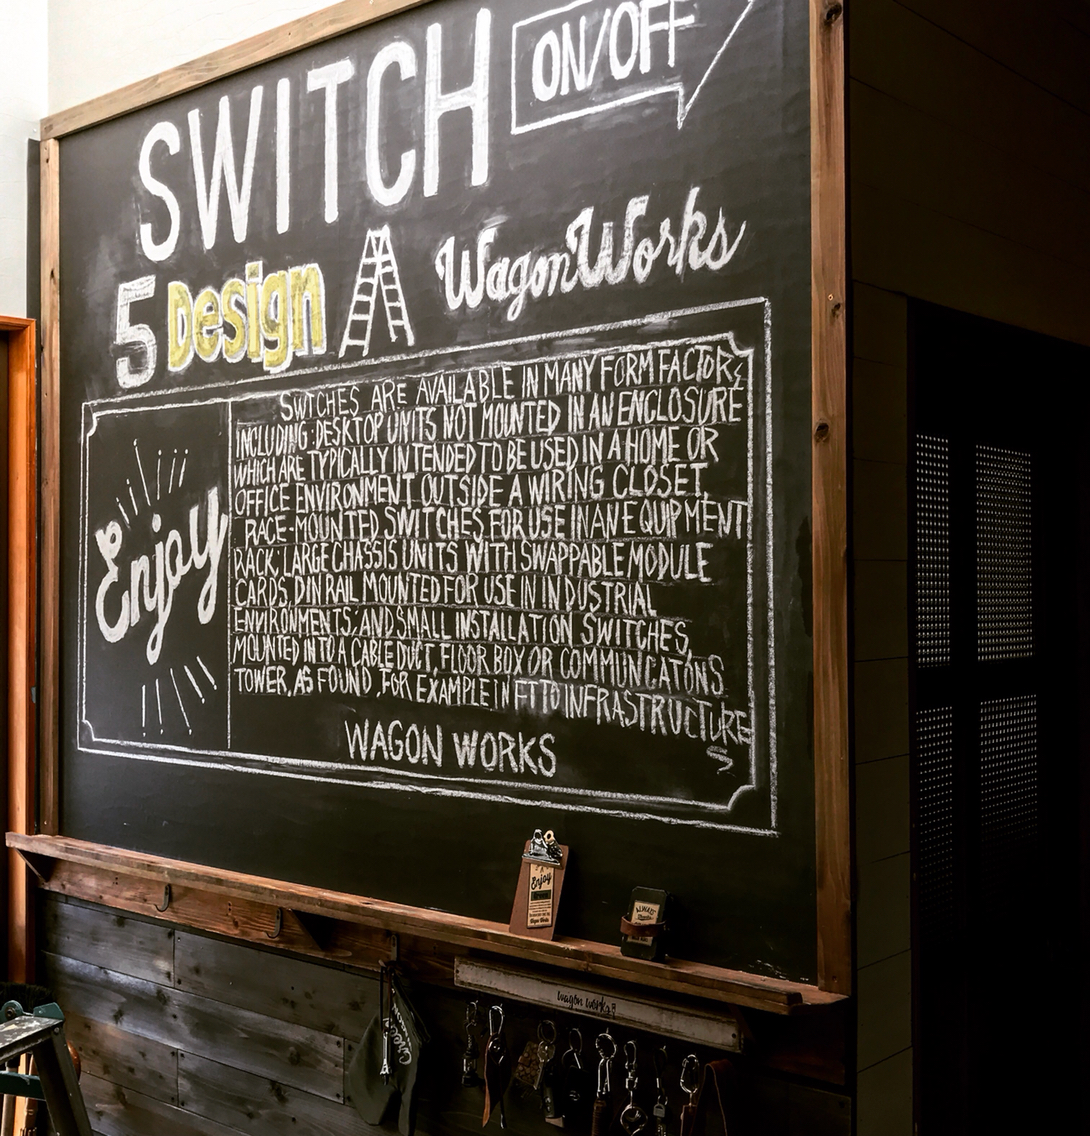 SWITCH ON/OFF
5 Design WagonWorks
Enjoy
SWTCHES ARE AVAILABLE IN MANY FORM FACTORS
INCLUDING: DESKTOP UNITS NOT MOUNTED IN AN ENCLOSURE
WHICH ARE TYPICALLY INTENDED TO BE USED IN A HOME OR
OFFICE ENVIRONMENT OUTSIDE A WIRING CLOSET,
RACE-MOUNTED SWITCHES FOR USE IN AN EQUIPMENT
RACK, LARGE CHASSIS UNITS WITH SWAPPABLE MODULE
CARDS, DIN RAIL MOUNTED FOR USE IN INDUSTRIAL
ENVIRONMENTS: AND SMALL INSTALLATION SWITCHES,
MOUNTED INTO A CABLE DUCT, FLOOR BOX OR COMMUNCATONS
TOWER, AS FOUND, FOR EXAMPLE IN FTTO INFRASTRUCTURE
S
WAGON WORKS
Enjoy
ALWAYS
wagon works